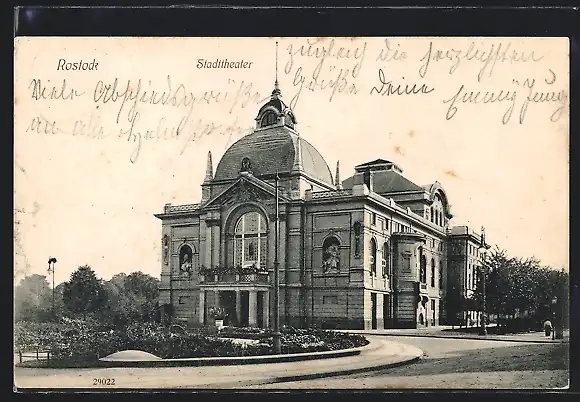 Rostock
Stadttheater
zugleich die herzlichsten
Viele Abschiedsgrüße
Grüße Deine
Emmy Jung
an alle
29022